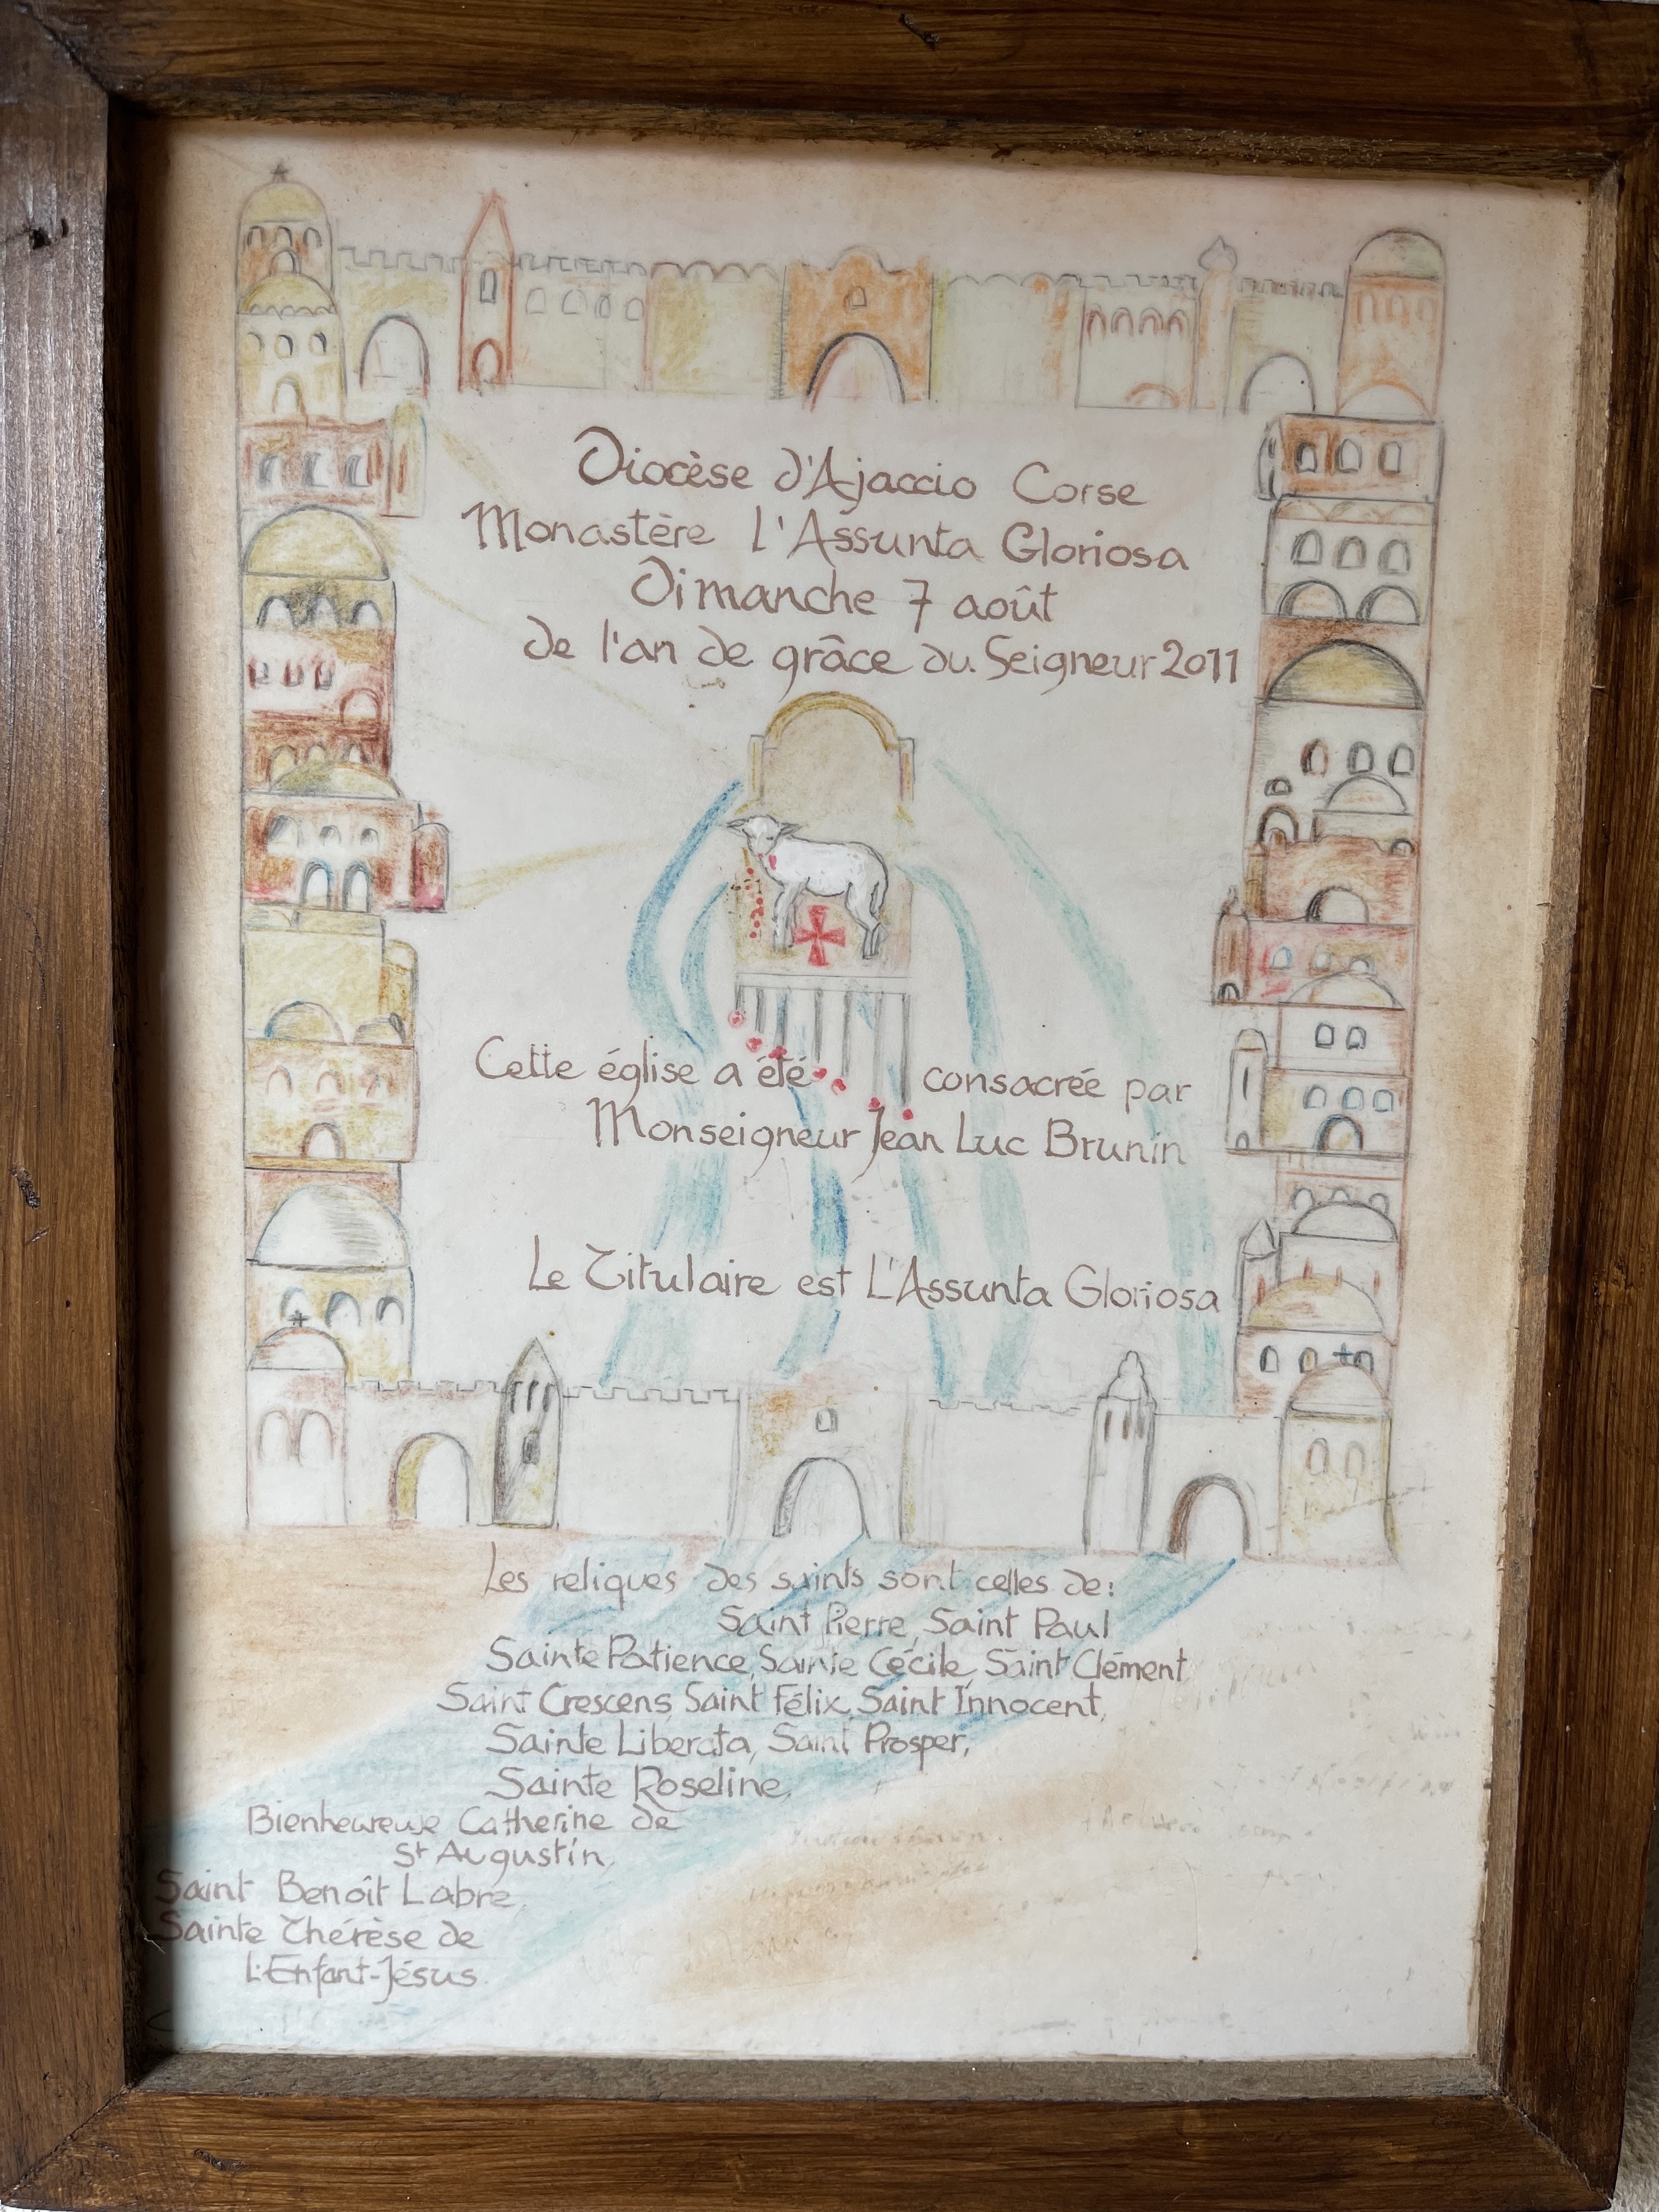 Diocèse d'Ajaccio Corse
Monastère l'Assunta Gloriosa
Dimanche 7 août
de l'an de grâce du Seigneur 2011
Cette église a été consacrée par
Monseigneur Jean Luc Brunin
Le Titulaire est L'Assunta Gloriosa
Les reliques des saints sont celles de:
Saint Pierre, Saint Paul
Sainte Patience, Sainte Cécile, Saint Clément
Saint Crescens, Saint Félix, Saint Innocent,
Sainte Liberata, Saint Prosper,
Sainte Roseline,
Bienheureuse Catherine de
St Augustin,
Saint Benoît Labre,
Sainte Thérèse de
L'Enfant-Jésus